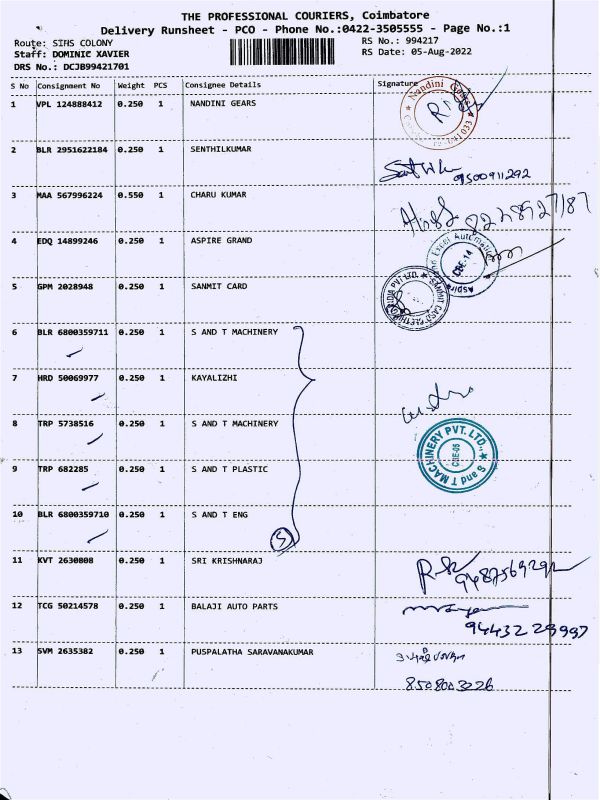 THE PROFESSIONAL COURIERS, Coimbatore
Delivery Runsheet - PCO - Phone No.:0422-3505555 - Page No.:1
Route: SIHS COLONY RS No.: 994217
Staff: DOMINIC XAVIER RS Date: 05-Aug-2022
DRS No.: DCJB99421701
S No Consignment No Weight PCS Consignee Details Signature
1 VPL 124888412 0.250 1 NANDINI GEARS
Nandini Gears
2 BLR 2951622184 0.250 1 SENTHILKUMAR
09500911292
3 MAA 567996224 0.550 1 CHARU KUMAR
4 EDQ 14899246 0.250 1 ASPIRE GRAND
CBE-14
5 GPM 2028948 0.250 1 SANMIT CARD
6 BLR 6800359711 0.250 1 S AND T MACHINERY
7 HRD 50069977 0.250 1 KAYALIZHI
8 TRP 5738516 0.250 1 S AND T MACHINERY
S and T MACHINERY PVT. LTD.,
CBE-05
9 TRP 682285 0.250 1 S AND T PLASTIC
10 BLR 6800359710 0.250 1 S AND T ENG
5
11 KVT 2630808 0.250 1 SRI KRISHNARAJ
9487569292
12 TCG 50214578 0.250 1 BALAJI AUTO PARTS
9443229997
13 SVM 2635382 0.250 1 PUSPALATHA SARAVANAKUMAR
8508003226